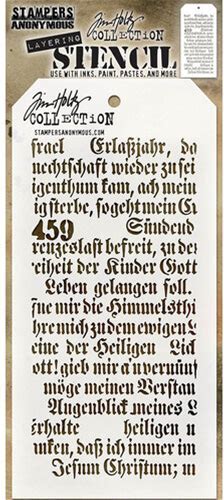 STAMPERS
ANONYMOUS
Tim Holtz
COLLECTION
LAYERING
STENCIL
USE WITH INKS, PAINT, PASTES, AND MORE
Tim Holtz
COLLECTION
STAMPERSANONYMOUS.COM
frael Erlaßjahr, da
nechtschaft wieder zu sei
igenthum kam, ach mein
ig sterbe, so geht mein Ei
459 Sündend
reuzeslast befreit, zu der
eiheit der Kinder Gott
Leben gelangen soll.
ne mir die Himmelsthü
hre mich zu dem ewigen L
eine der Heiligen Lid
ott! gieb mir a u vernünf
möge meinen Verstan
Augenblick meines L
rhalte heiligen u
nken, daß ich immer im
Jesum Christum; m